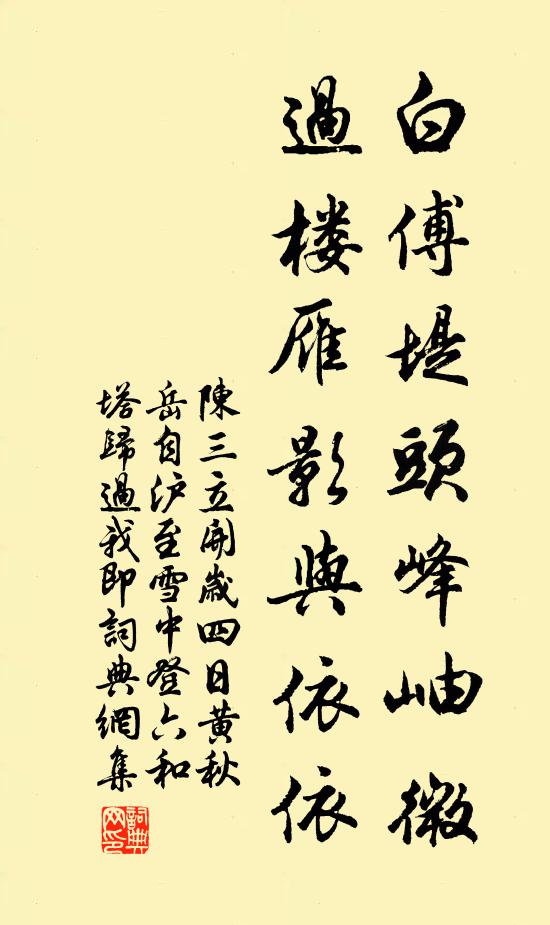 白傅堤頭峰岫微
過楼雁影與依依
陳三立開歲四日黃秋
岳自沪至雪中登六和
塔歸過我即詞典網集
詞典网印